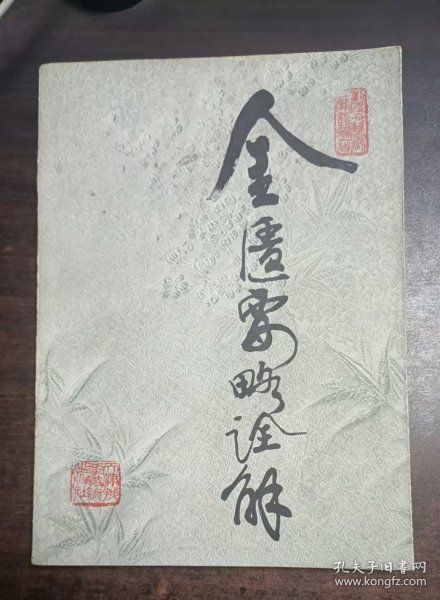 金匮要略诠解
孔夫子旧书网
www.kongfz.com